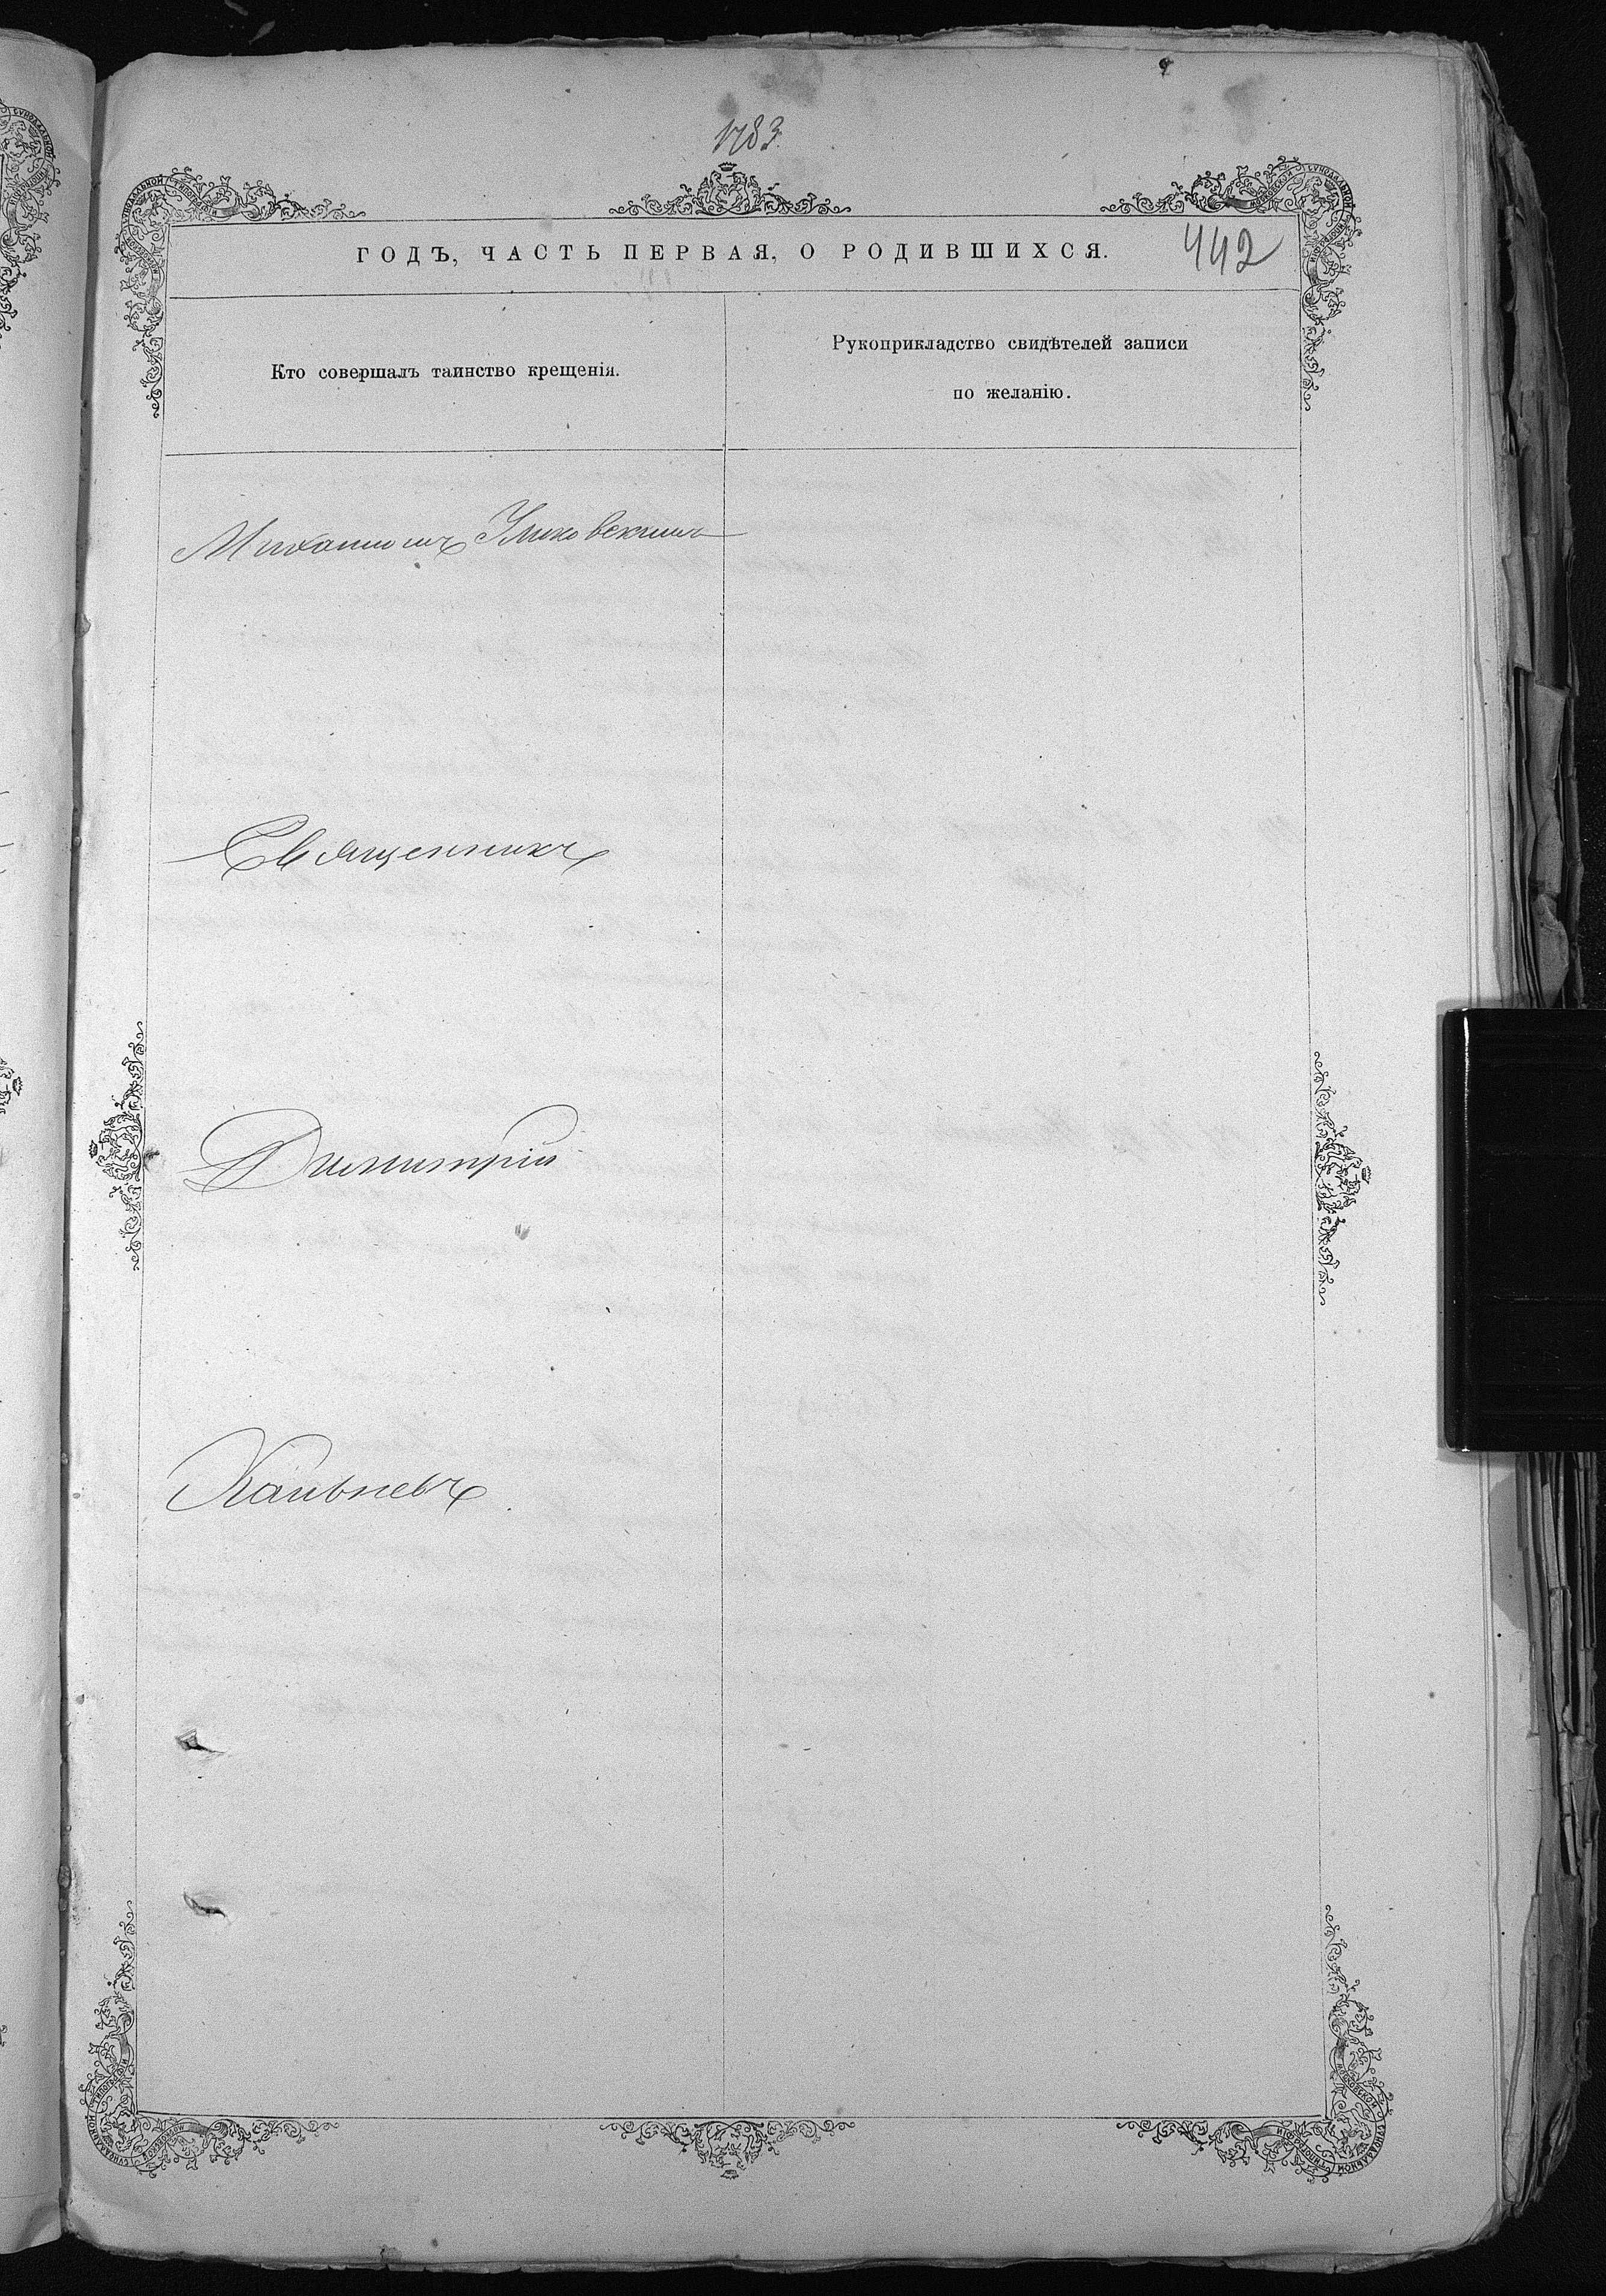 1783.
ГОДЪ, ЧАСТЬ ПЕРВАЯ, О РОДИВШИХСЯ.
442
Кто совершалъ таинство крещенія.
Рукоприкладство свидѣтелей записи
по желанію.
Михаиломъ
Священникъ
Димитрій